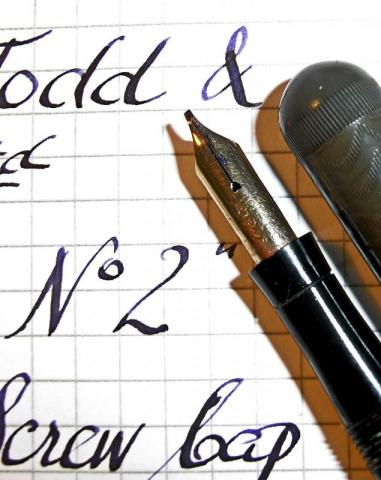 Todd &
td
N° 2"
Screw Cap